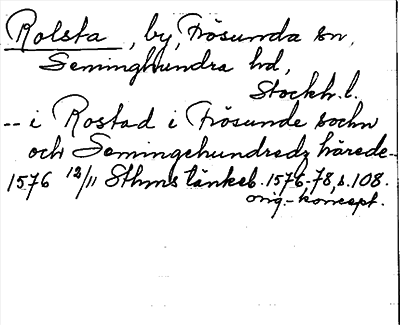 Rolsta, by, Frösunda sn,
Seminghundra hd,
Stockh. l.
-- i Rostad i Frösunde sochn
och Semingehundredz härede--
1576 12/11 Sthms tänkeb. 1576-78, s. 108.
orig.-koncept.